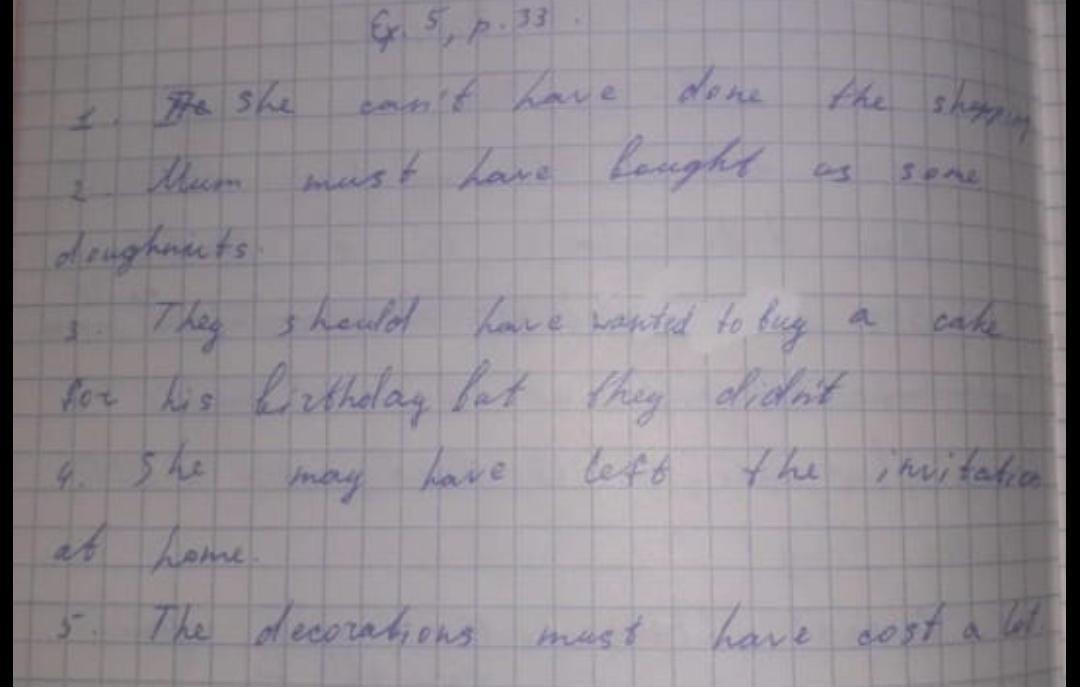 Ex. 5, p. 33.
1. She can't have done the shopping
2. Mum must have bought us some
doughnuts.
3. They should have wanted to buy a cake
for his birthday but they didn't
4. She may have left the invitation
at home.
5. The decorations must have cost a lot.